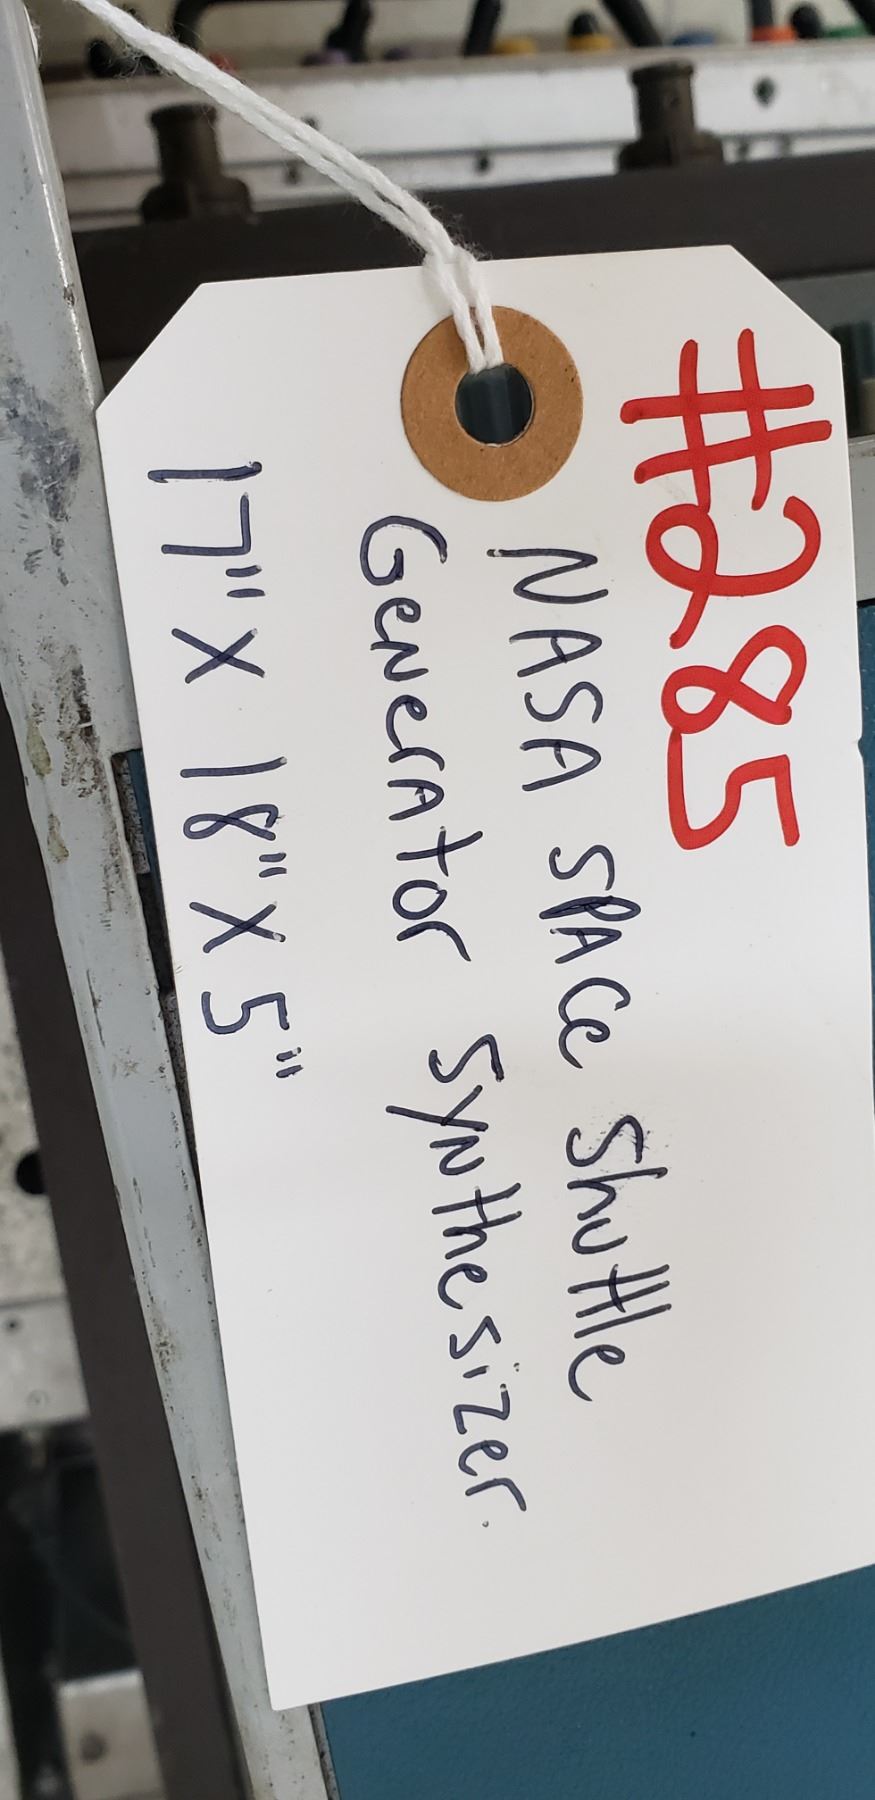 #285
NASA SPACe Shuttle
GeNerAtor SyNthesizer.
17" X 18" X 5"